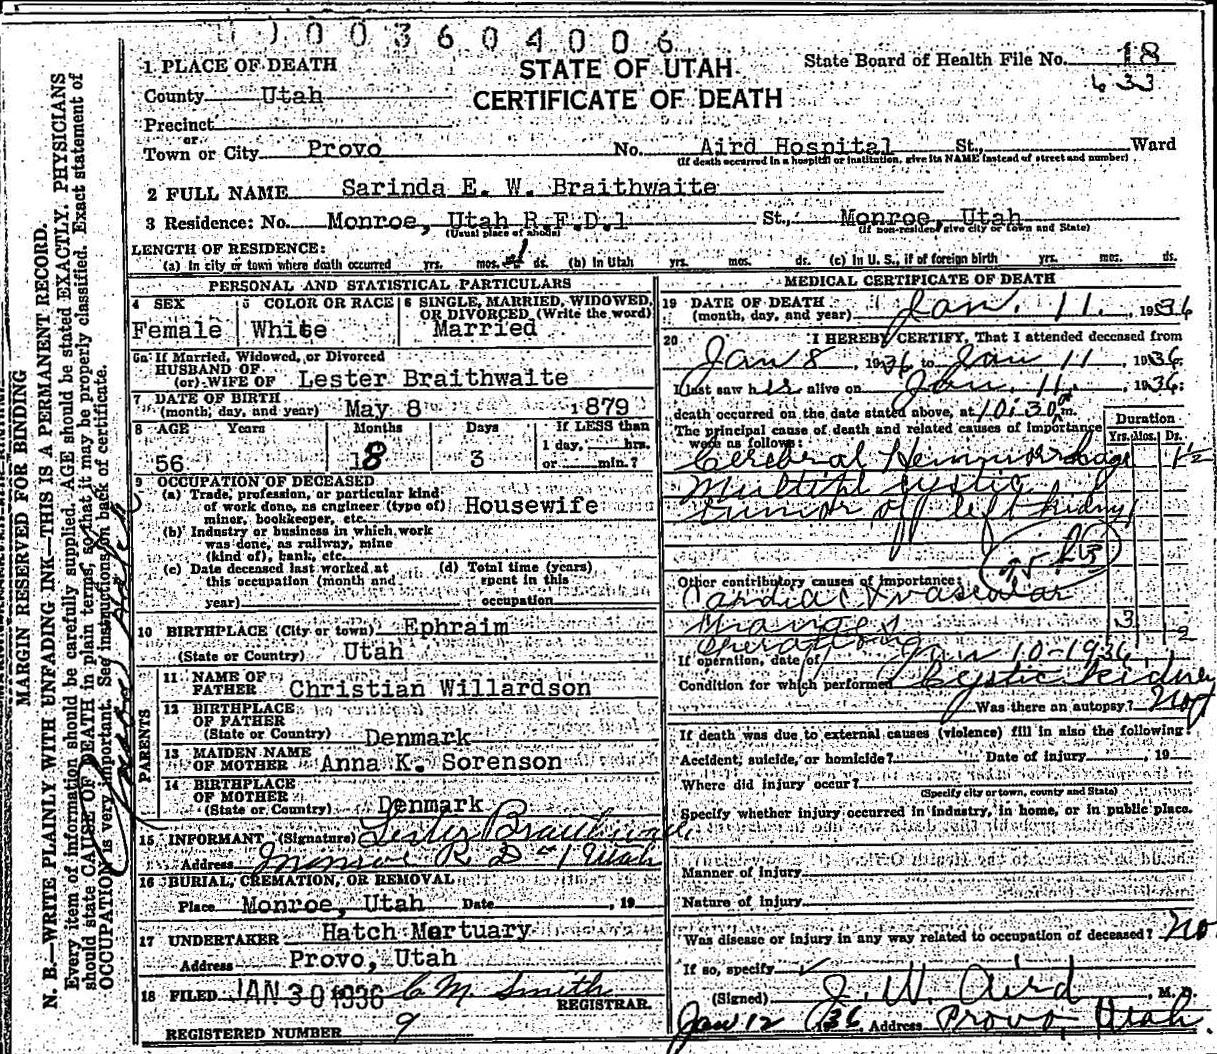 0003604006
1 PLACE OF DEATH
STATE OF UTAH
State Board of Health File No. 18
633
County Utah
CERTIFICATE OF DEATH
Precinct
or
Town or City Provo No. Aird Hospital St., Ward
(If death occurred in a hospital or institution, give its NAME instead of street and number)
2 FULL NAME Sarinda E. W. Braithwaite
3 Residence: No. Monroe, Utah R.F.D.1 St., Monroe, Utah
(Usual place of abode) (If non-resident give city or town and State)
LENGTH OF RESIDENCE:
(a) In city or town where death occurred yrs. mos. ds. (b) In Utah yrs. mos. ds. (c) In U. S., if of foreign birth yrs. mos. ds.
PERSONAL AND STATISTICAL PARTICULARS
4 SEX 5 COLOR OR RACE 6 SINGLE, MARRIED, WIDOWED, OR DIVORCED (Write the word)
Female White Married
6a If Married, Widowed, or Divorced
HUSBAND OF
(or) WIFE OF Lester Braithwaite
7 DATE OF BIRTH
(month, day, and year) May 8 1879
8 AGE Years Months Days If LESS than
1 day, hrs.
56 8 3 or min.?
9 OCCUPATION OF DECEASED
(a) Trade, profession, or particular kind
of work done, as engineer (type of) Housewife
minor, bookkeeper, etc.
(b) Industry or business in which work
was done, as railway, mine
(kind of), bank, etc.
(c) Date deceased last worked at (d) Total time (years)
this occupation (month and spent in this
year) occupation
10 BIRTHPLACE (City or town) Ephraim
(State or Country) Utah
PARENTS
11 NAME OF
FATHER Christian Willardson
12 BIRTHPLACE
OF FATHER
(State or Country) Denmark
13 MAIDEN NAME
OF MOTHER Anna K. Sorenson
14 BIRTHPLACE
OF MOTHER
(State or Country) Denmark
15 INFORMANT (Signature) Lester Braithwaite
Address Monroe R D #1 Utah
16 BURIAL, CREMATION, OR REMOVAL
Place Monroe, Utah Date , 19
17 UNDERTAKER Hatch Mortuary
Address Provo, Utah
18 FILED JAN 30 1936 C M. Smith
REGISTRAR.
REGISTERED NUMBER 9
MEDICAL CERTIFICATE OF DEATH
19 DATE OF DEATH
(month, day, and year) Jan. 11, 1936
20 I HEREBY CERTIFY, That I attended deceased from
Jan 8, 1936 to Jan 11 1936
I last saw h is alive on Jan. 11, 1936:
death occurred on the date stated above, at 10:30 m.
The principal cause of death and related causes of importance
were as follows:
Duration
Yrs. Mos. Ds.
Cerebral Hemmorrhage 1½
Multiple cystic
tumor of left kidney
Other contributory causes of importance:
Cardiac & vascular
changes 3
Operation
If operation, date of Jan 10-1936
Condition for which performed Cystic Kidney
Was there an autopsy? No
If death was due to external causes (violence) fill in also the following:
Accident, suicide, or homicide? Date of injury , 19
Where did injury occur?
(Specify city or town, county and State)
Specify whether injury occurred in industry, in home, or in public place.
Manner of Injury
Nature of injury
Was disease or injury in any way related to occupation of deceased? No
If so, specify
(Signed) J. W. Aird, M. D.
Jan 12 1936 Address Provo, Utah.
MARGIN RESERVED FOR BINDING
N. B.—WRITE PLAINLY WITH UNFADING INK—THIS IS A PERMANENT RECORD.
Every item of information should be carefully supplied. AGE should be stated EXACTLY. PHYSICIANS
should state CAUSE OF DEATH in plain terms, so that it may be properly classified. Exact statement of
OCCUPATION is very important. See instructions on back of certificate.